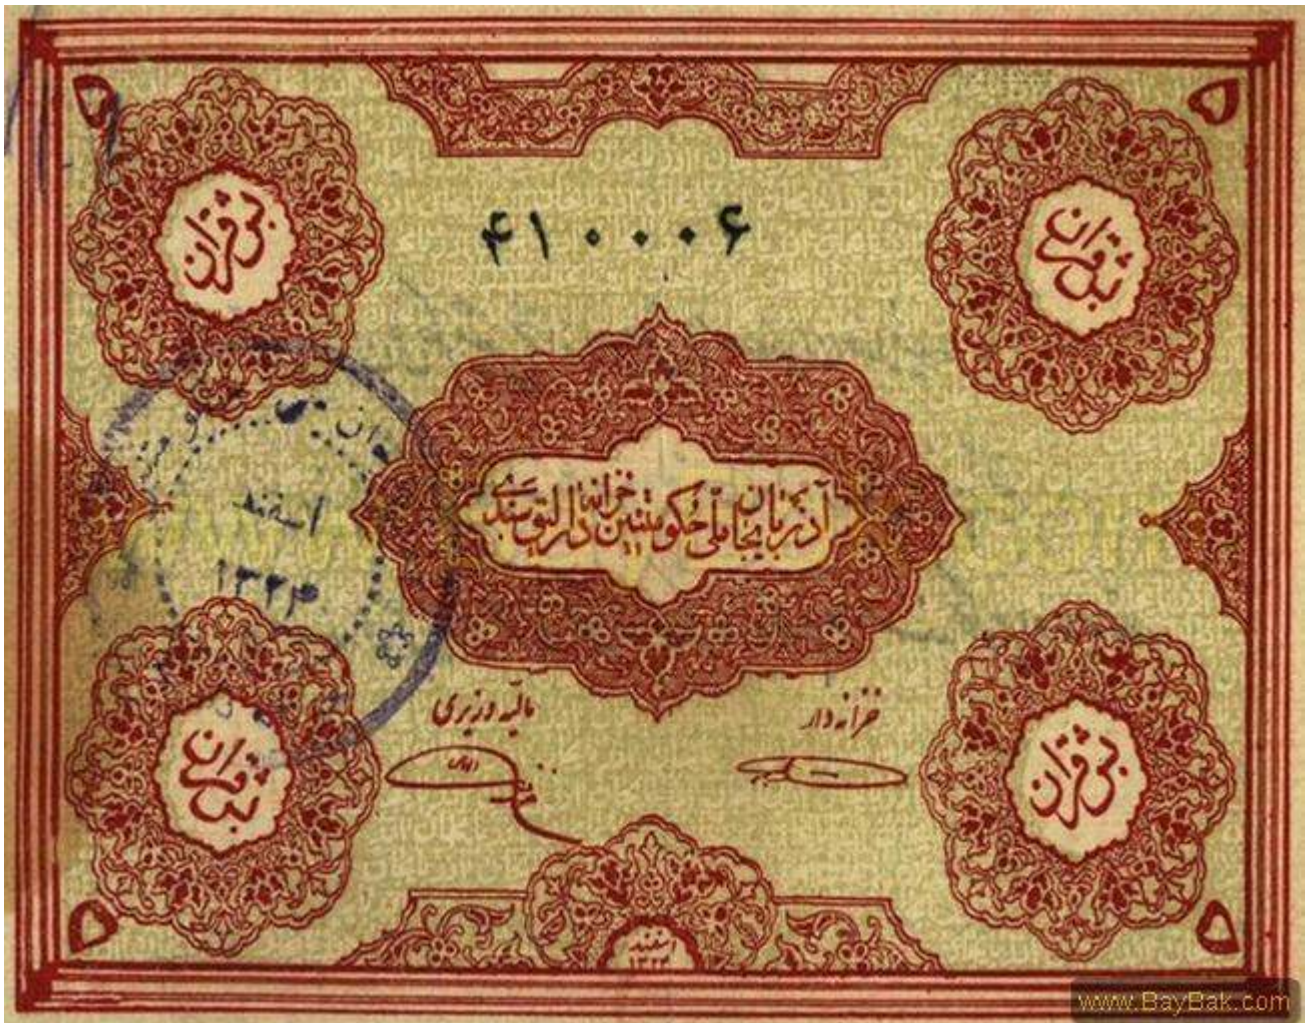 ۵
۵
بش قران
بش قران
۴۱۰۰۰۶
آذربایجان ملّی حکومتنین خزانه دارلیق سندی
اسفند
۱۳۲۴
خزانه دار
مالیّه وزیری
بش قران
بش قران
اسفند
۱۳۲۴
۵
۵
www.BayBak.com